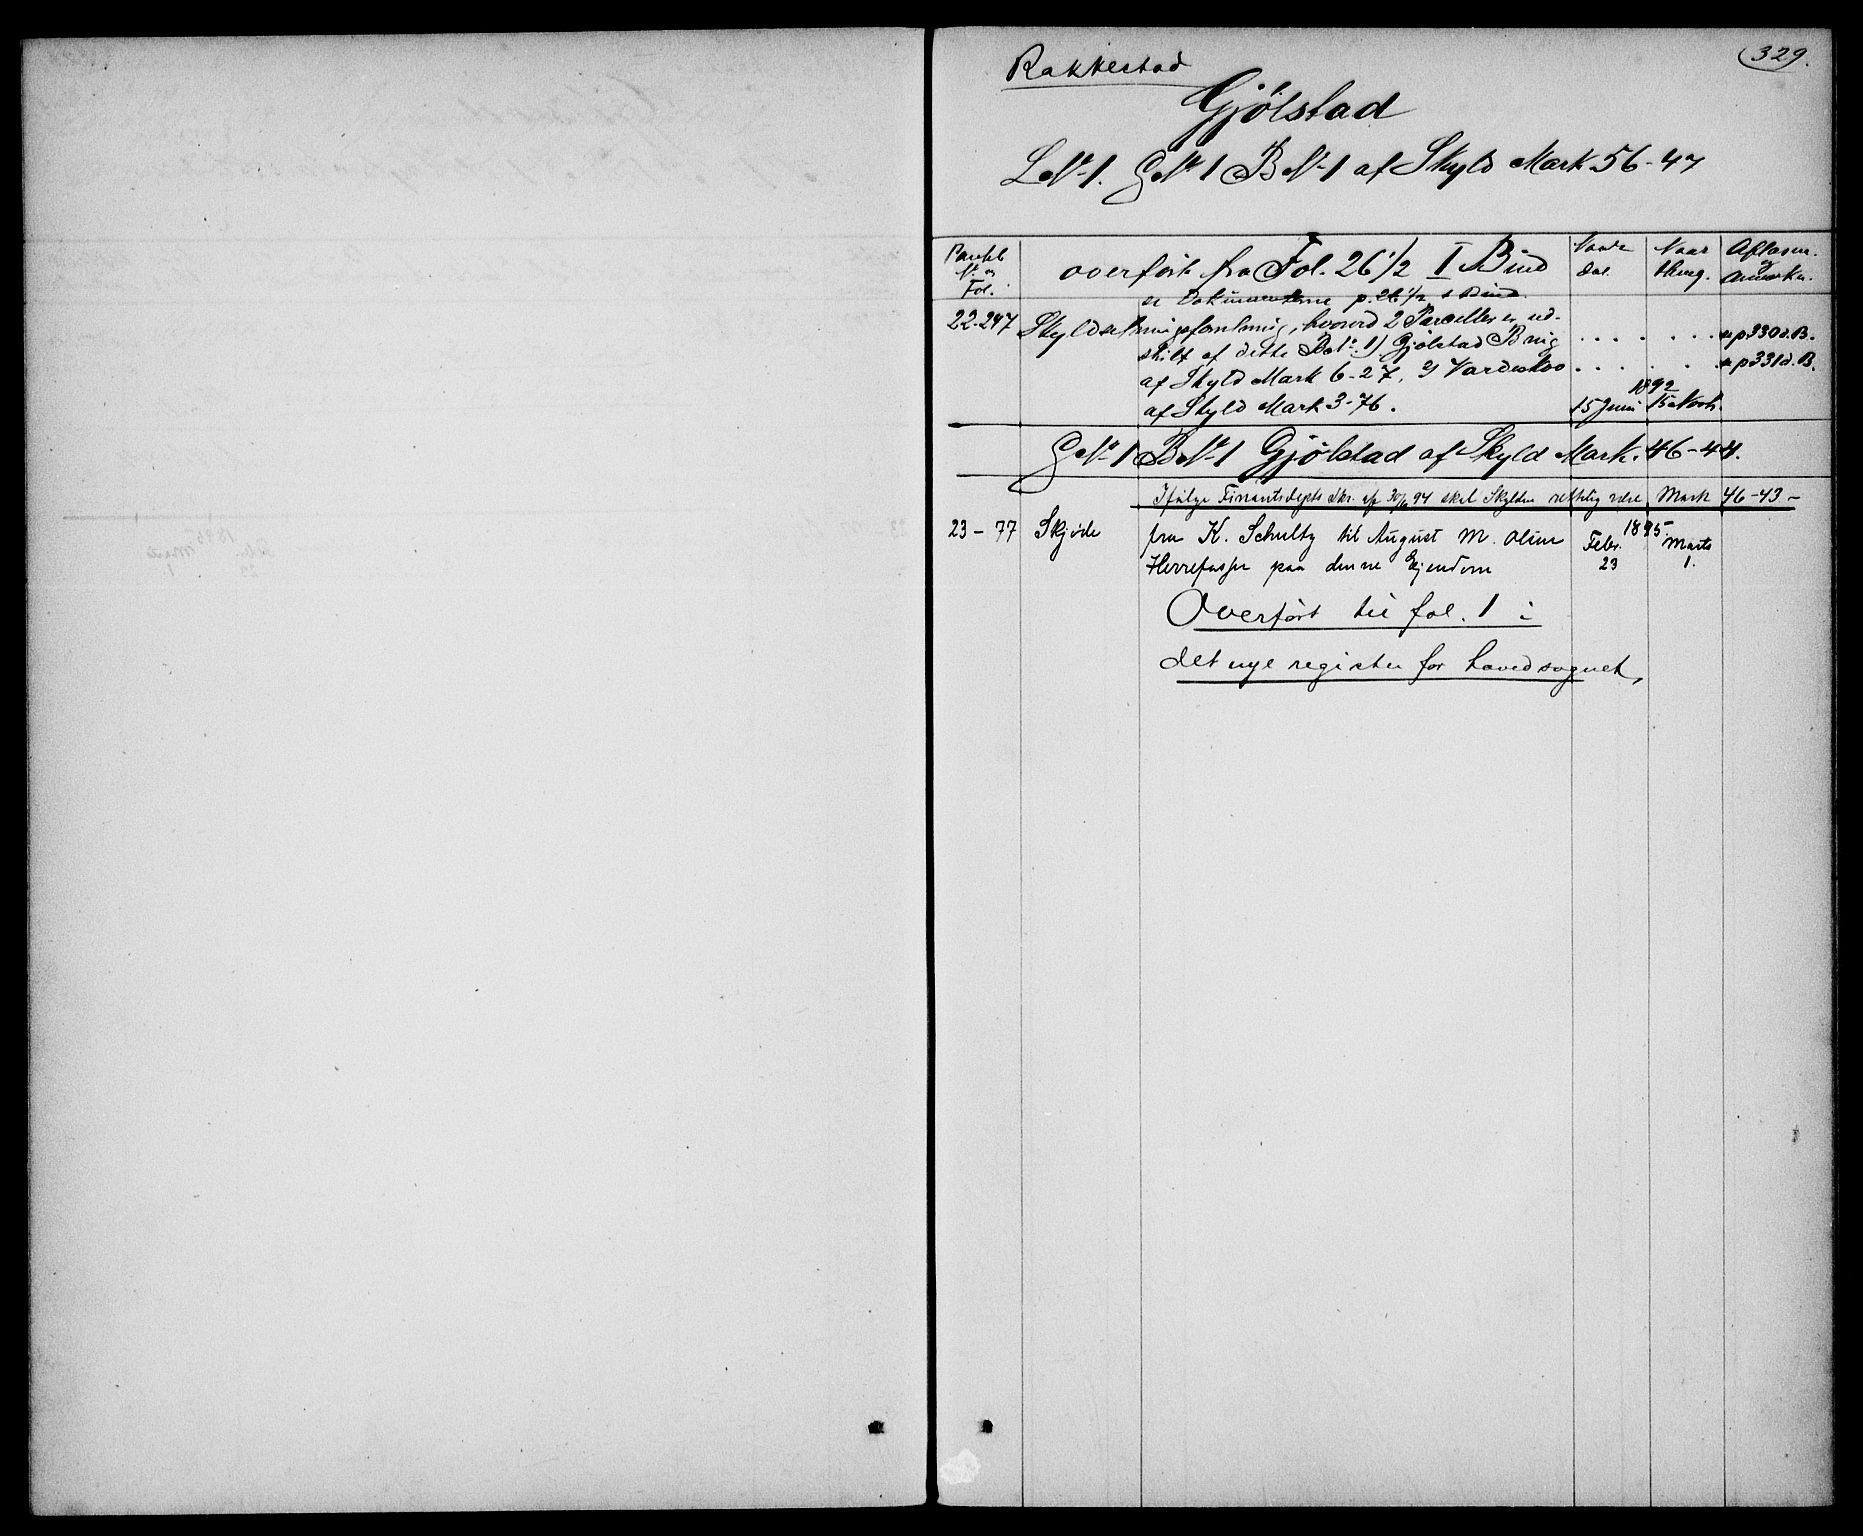 329.
Rakkestad
Gjölstad
L.Nr 1. GNr 1 BNr 1 af Skyld Mark 56-47
Panteb. Nr og Fol.
overført fra Fol. 26 1/2 I Bind
Naar dat.
Naar thing.
Aflæsn. og Anmærkn.
se Dokumenterne p. 26 1/2 I Bind.
22-247 Skyldsætningsforretning, hvorved 2 Parceller er ud-
skilt af dette BNr: 1) Gjölstad Brug . . . . . . . se p 330 d. B.
af Skyld Mark 6-27, 2) Vardeskov . . . . . . se p 331 d. B.
1892
af Skyld Mark 3-76. 15 Juni 15 Novb.
GNr 1 BNr 1 Gjölstad af Skyld Mark. 46-44.
Ifølge Finantsdepts Skr. af 30/6 94 skal Skylden rettelig være Mark 46-43-
1895
23-77 Skjøde fra K. Schultz til August M. Olsen Febr. Marts
Herrefosser paa denne Ejendom 23 1.
Overført til fol. 1 i
det nye register for hovedsognet,